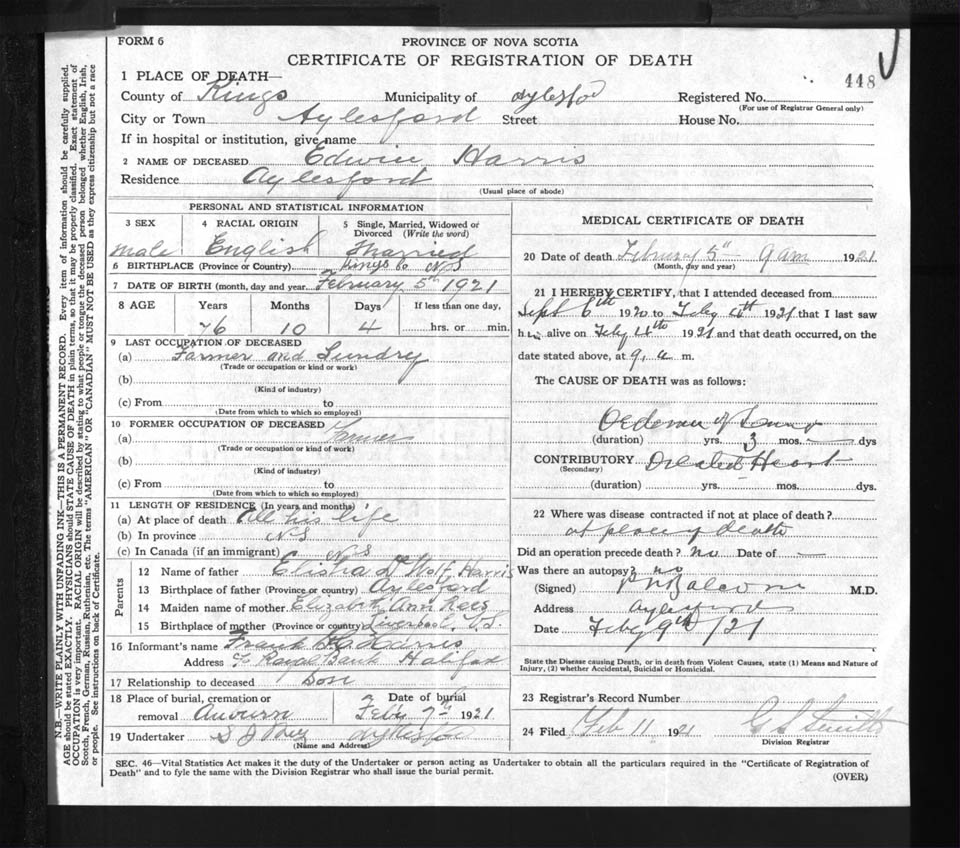 FORM 6
PROVINCE OF NOVA SCOTIA
CERTIFICATE OF REGISTRATION OF DEATH
448
1 PLACE OF DEATH—
County of Kings Municipality of Aylesford Registered No.
(For use of Registrar General only)
City or Town Aylesford Street House No.
If in hospital or institution, give name
2 NAME OF DECEASED Edwin Harris
Residence Aylesford
(Usual place of abode)
PERSONAL AND STATISTICAL INFORMATION
3 SEX 4 RACIAL ORIGIN 5 Single, Married, Widowed or Divorced (Write the word)
male English Married
6 BIRTHPLACE (Province or Country) Kings Co NS
7 DATE OF BIRTH (month, day and year February 5th 1921
8 AGE Years Months Days If less than one day,
76 10 4 hrs. or min.
9 LAST OCCUPATION OF DECEASED
(a) Farmer and
(Trade or occupation or kind or work)
(b)
(Kind of industry)
(c) From to
(Date from which to which so employed)
10 FORMER OCCUPATION OF DECEASED
(a) Farmer
(Trade or occupation or kind of work)
(b)
(Kind of industry)
(c) From to
(Date from which to which so employed)
11 LENGTH OF RESIDENCE (In years and months)
(a) At place of death All his life
(b) In province NS
(c) In Canada (if an immigrant) NS
Parents
12 Name of father Elisha D Wolf Harris
13 Birthplace of father (Province or country) Aylesford
14 Maiden name of mother Elizabeth Ann Rees
15 Birthplace of mother (Province or country) Liverpool,
16 Informant's name Frank Harris
Address Royal Bank Halifax
17 Relationship to deceased Son
18 Place of burial, cremation or removal Auburn
Date of burial
Feby 7th 1921
19 Undertaker Aylesford
(Name and Address)
MEDICAL CERTIFICATE OF DEATH
20 Date of death February 5th 9 am 1921
(Month, day and year)
21 I HEREBY CERTIFY, that I attended deceased from
Sept 6th 1920 to Feby 4th 1921 that I last saw
h im alive on Feby 4th 1921 and that death occurred, on the
date stated above, at 9, a m.
The CAUSE OF DEATH was as follows:
Oedema of
(duration) yrs. 3 mos. — dys
CONTRIBUTORY Heart
(Secondary)
(duration) yrs. mos. dys.
22 Where was disease contracted if not at place of death?
at place of death
Did an operation precede death? No Date of —
Was there an autopsy? no
(Signed) M.D.
Address Aylesford
Date Feby 9th /21
State the Disease causing Death, or in death from Violent Causes, state (1) Means and Nature of Injury, (2) whether Accidental, Suicidal or Homicidal.
23 Registrar's Record Number
24 Filed Feb 11 1921 G S Smith
Division Registrar
SEC. 46—Vital Statistics Act makes it the duty of the Undertaker or person acting as Undertaker to obtain all the particulars required in the "Certificate of Registration of
Death" and to fyle the same with the Division Registrar who shall issue the burial permit.
(OVER)
N.B.—WRITE PLAINLY WITH UNFADING INK—THIS IS A PERMANENT RECORD. Every item of information should be carefully supplied.
AGE should be stated EXACTLY. PHYSICIANS should STATE CAUSE OF DEATH in plain terms, so that it may be properly classified. Exact statement of
OCCUPATION is very important. RACIAL ORIGIN will be described by stating to what people or tongue the deceased person belonged whether English, Irish,
Scotch, French, German, Russian, Ruthenian, etc. The terms "AMERICAN" OR "CANADIAN" MUST NOT BE USED as they express citizenship but not a race
or people. See instructions on back of Certificate.